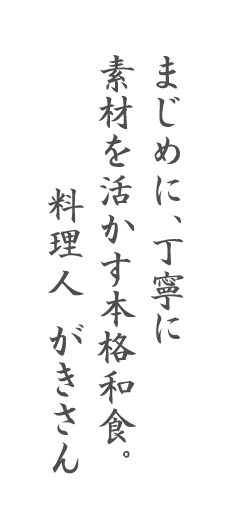 まじめに、丁寧に
素材を活かす本格和食。
料理人　がきさん